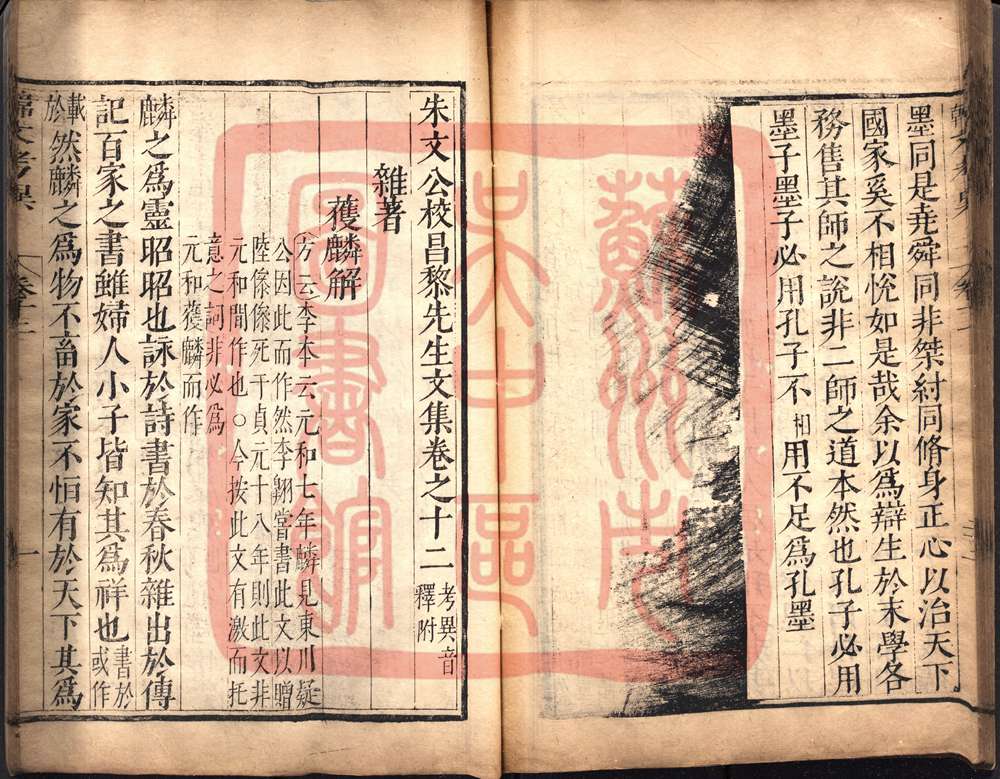 墨同是堯舜同非桀紂同脩身正心以治天下
國家奚不相悅如是哉余以爲辯生於末學各
務售其師之說非二師之道本然也孔子必用
墨子墨子必用孔子不相用不足爲孔墨
朱文公校昌黎先生文集卷之十二 考異音釋附
雜著
獲麟解
方云李本云元和七年麟見東川疑
公因此而作然李翺嘗書此文以贈
陸傪傪死于貞元十八年則此文非
元和間作也○今按此文有激而托
意之詞非必爲
元和獲麟而作
麟之爲靈昭昭也詠於詩書於春秋雜出於傳
記百家之書雖婦人小子皆知其爲祥也書於或作
載於然麟之爲物不畜於家不恒有於天下其爲
韓文考異
卷十二
一
蘇州市
吳中區
圖書館